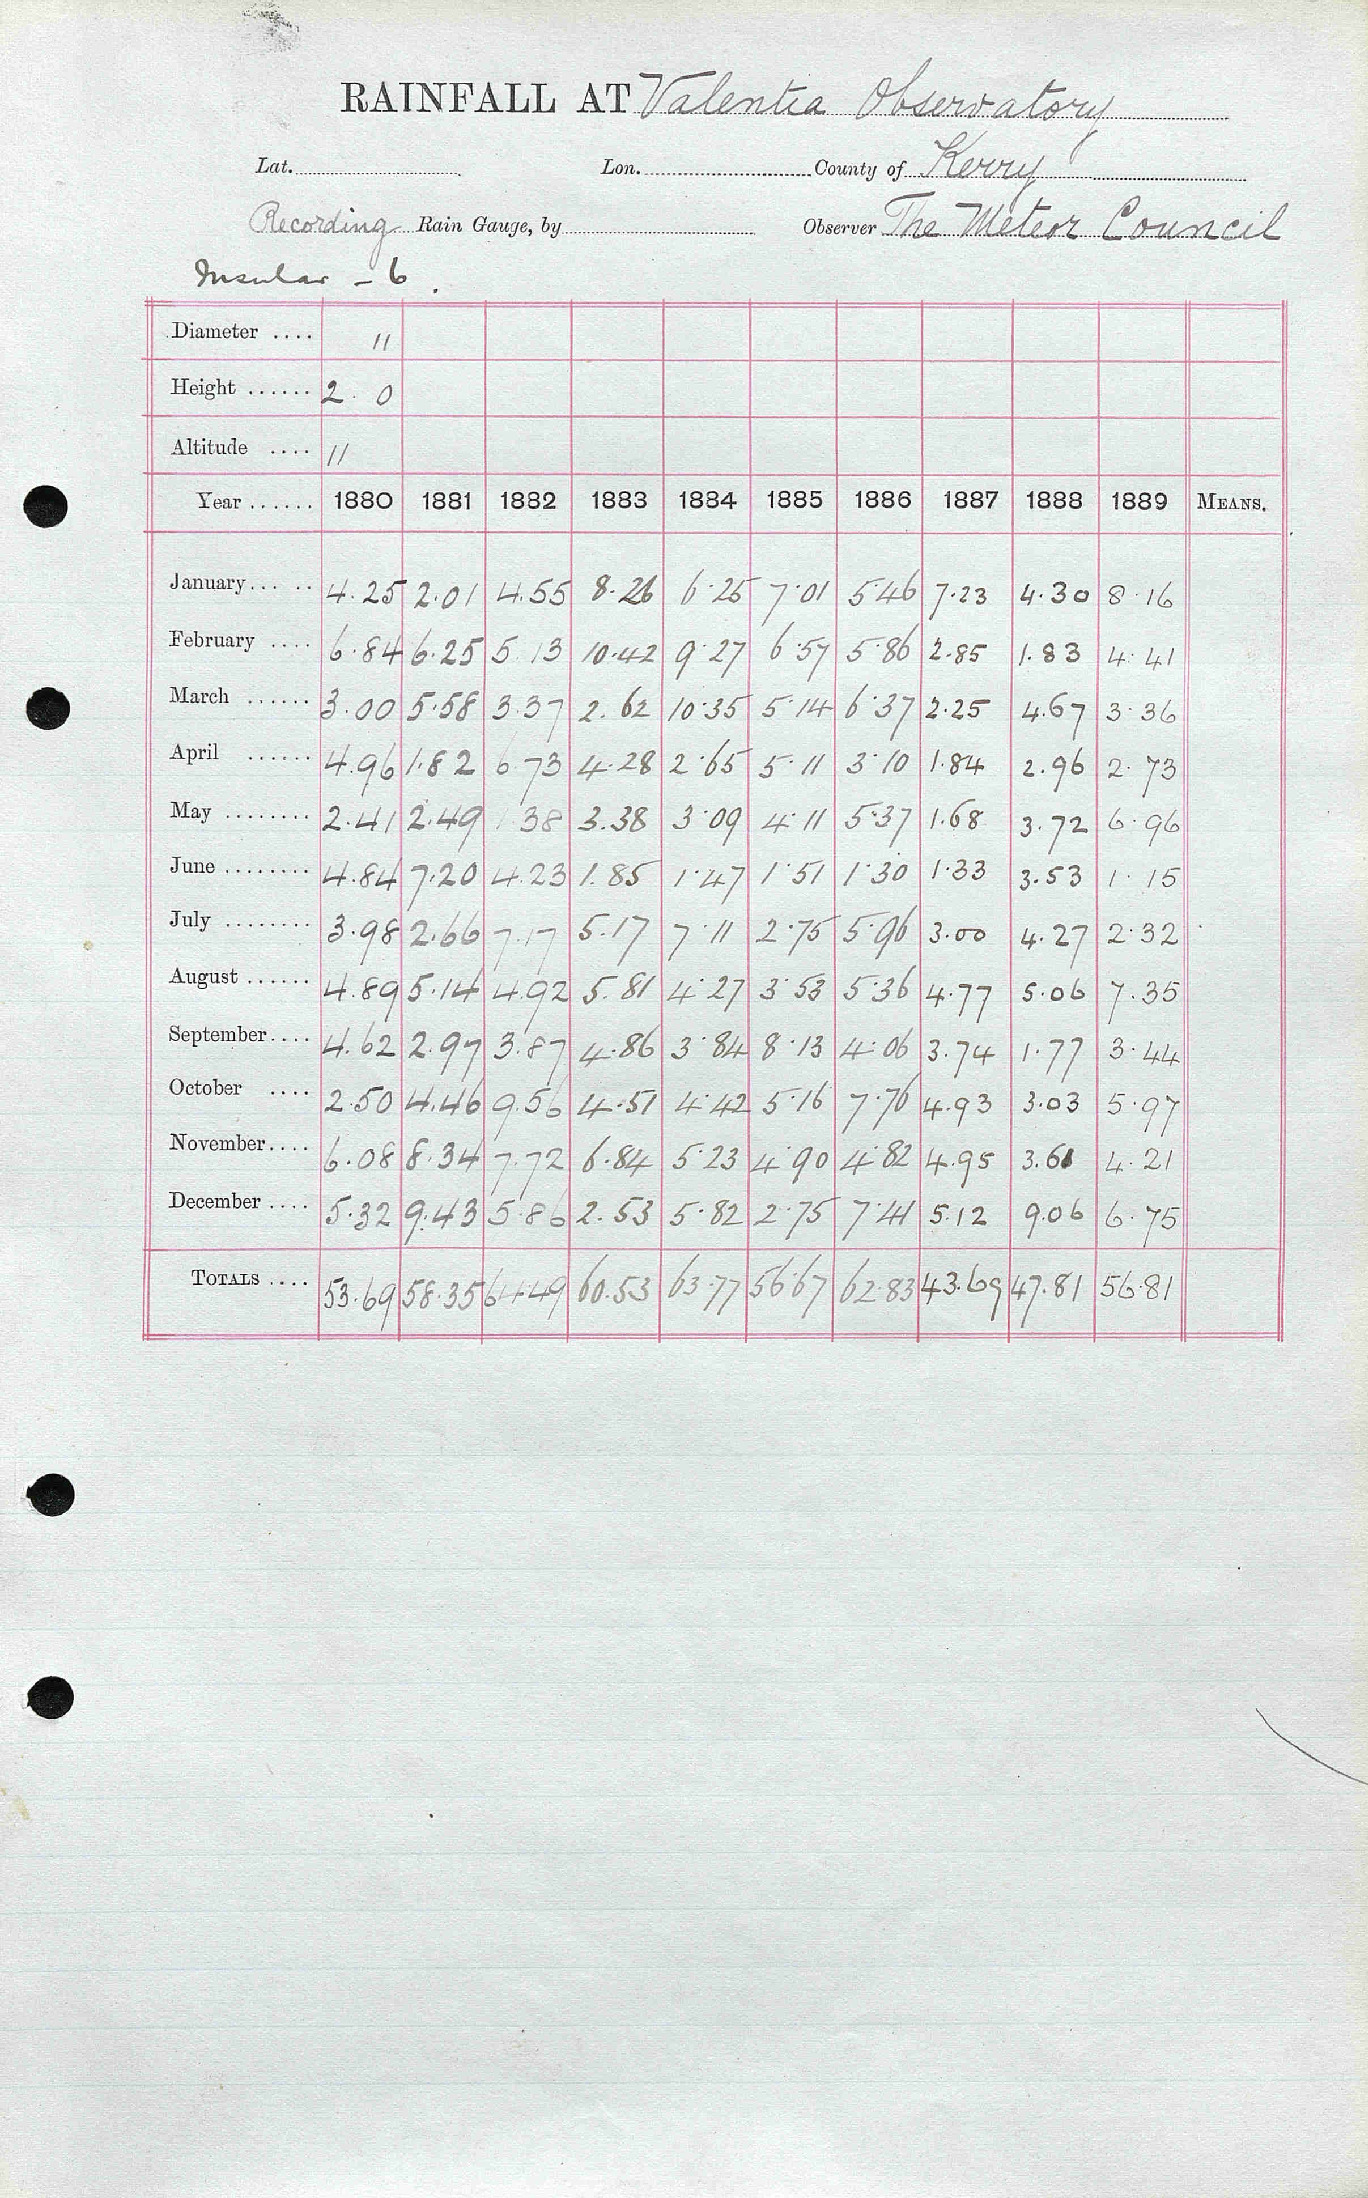 RAINFALL AT Valentia Observatory
Lat. Lon. County of Kerry
Recording Rain Gauge, by Observer The Meteor Council
Insular - 6.
Diameter .... 11
Height ...... 2. 0
Altitude .... 11
Year ...... 1880 1881 1882 1883 1884 1885 1886 1887 1888 1889 MEANS.
January... .. 4.25 2.01 4.55 8.26 6.25 7.01 5.46 7.23 4.30 8.16
February .... 6.84 6.25 5.13 10.42 9.27 6.57 5.86 2.85 1.83 4.41
March ...... 3.00 5.58 3.37 2.62 10.35 5.14 6.37 2.25 4.67 3.36
April ...... 4.96 1.82 6.73 4.28 2.65 5.11 3.10 1.84 2.96 2.73
May ........ 2.41 2.49 1.38 3.38 3.09 4.11 5.37 1.68 3.72 6.96
June ........ 4.84 7.20 4.23 1.85 1.47 1.51 1.30 1.33 3.53 1.15
July ........ 3.98 2.66 7.17 5.17 7.11 2.75 5.96 3.00 4.27 2.32
August ...... 4.89 5.14 4.92 5.81 4.27 3.53 5.36 4.77 5.06 7.35
September.... 4.62 2.97 3.87 4.86 3.84 8.13 4.06 3.74 1.77 3.44
October .... 2.50 4.46 9.56 4.51 4.42 5.16 7.76 4.93 3.03 5.97
November.... 6.08 8.34 7.72 6.84 5.23 4.90 4.82 4.95 3.61 4.21
December .... 5.32 9.43 5.86 2.53 5.82 2.75 7.41 5.12 9.06 6.75
TOTALS .... 53.69 58.35 64.49 60.53 63.77 56.67 62.83 43.69 47.81 56.81